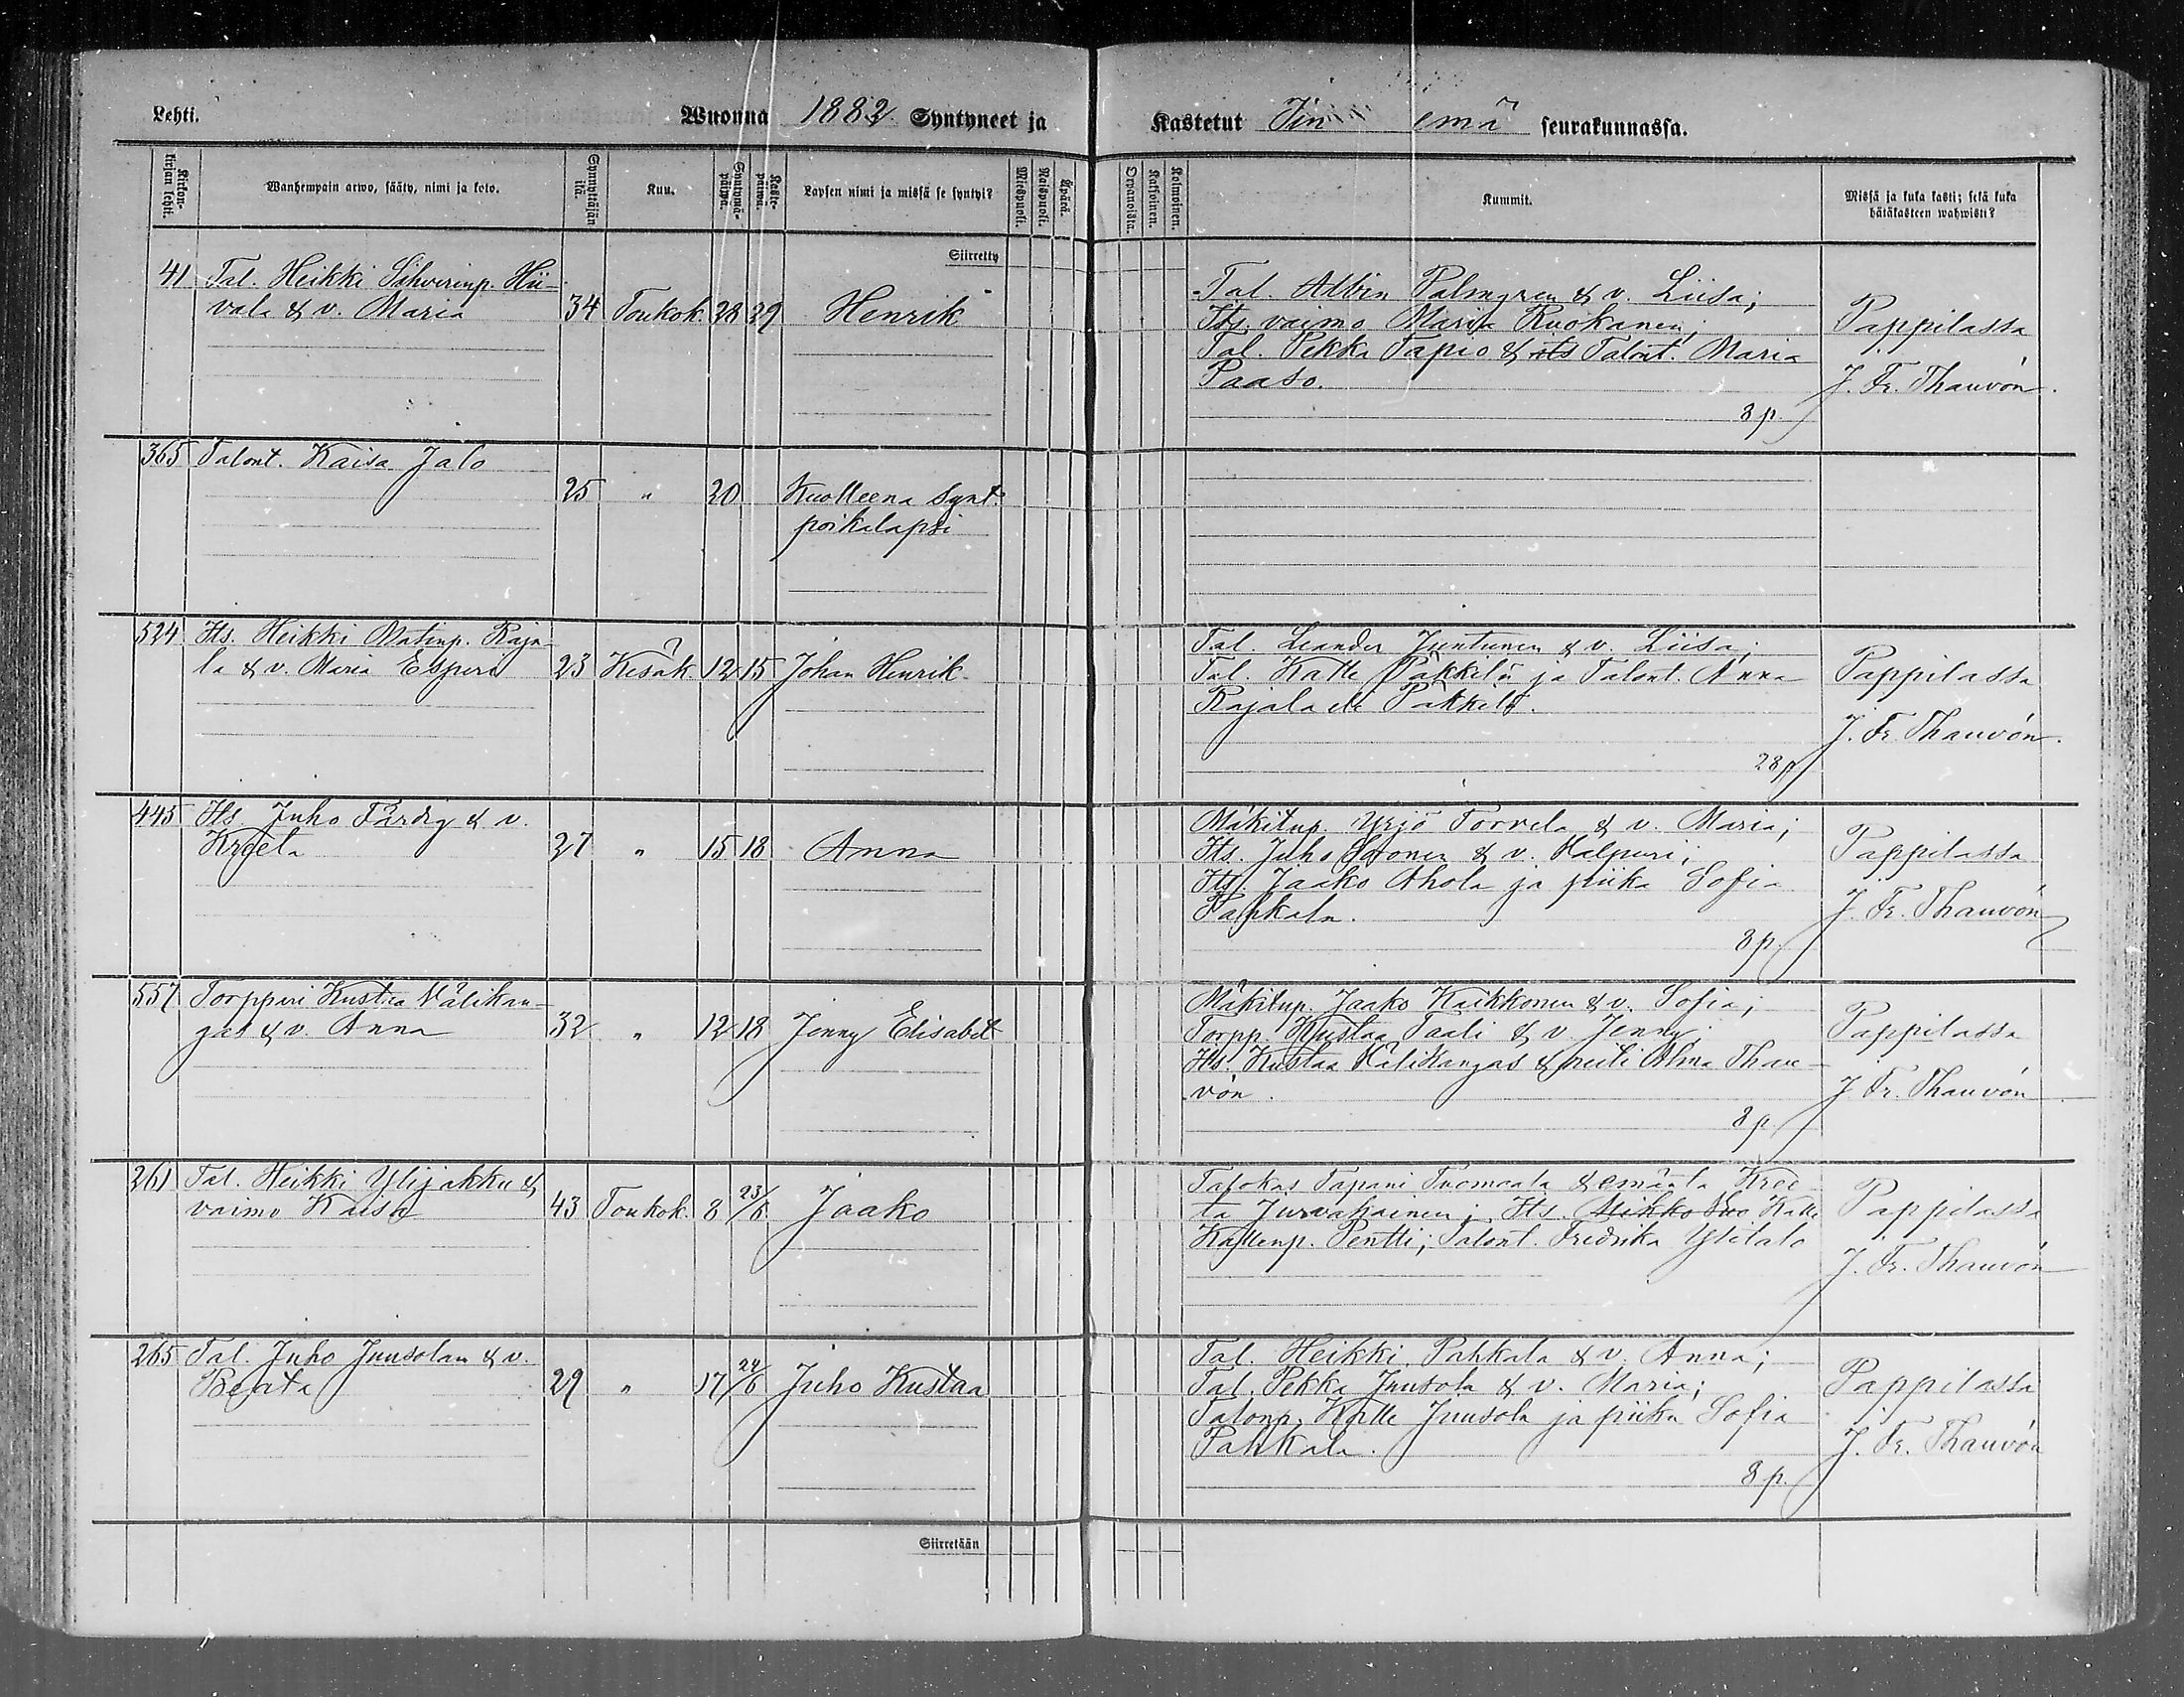 Lehti.
Wuonna 1882 Syntyneet ja
Kastetut Iin emä seurakunnassa.
Kirkon-kirjan lehti.
Wanhempain arwo, sääty, nimi ja koto.
Synnyttäjän ikä.
Kuu.
Syntymä-päiwä.
Kaste-päiwä.
Lapsen nimi ja missä se syntyi?
Miespuoli.
Naispuoli.
Äpärä.
Orvanoista.
Kaksoinen.
Kolmoinen.
Kummit.
Missä ja kuka kasti; sekä kuka
hätäkasteen wahwisti?
Siirretty
41 Tal. Heikki Sihverinp. Hii-
vala & v. Maria 34 Toukok. 28 29 Henrik
Tal. Albin Palmgren & v. Liisa;
Its. vaimo Maria Ruokanen;
Tal. Pekka Tapio & its Talont. Maria
Paaso.
8 p.
Pappilassa
J. Fr. Thauvón.
365 Talont. Kaisa Jalo
25 " 20 Kuolleena synt.
poikalapsi
524 Its. Heikki Matinp. Raja-
la & v. Maria Espera 23 Kesäk. 12 15 Johan Henrik
Tal. Leander Juntunen & v. Liisa;
Tal. Kalle Päkkilä ja Talont. Anna
Rajala eli Päkkilä.
28 p.
Pappilassa
J. Fr. Thauvón.
445 Its. Juho Färdig & v.
Kreeta 27 " 15 18 Anna
Mäkitup. Yrjö Torvela & v. Maria;
Its. Juho & v. Valpuri;
Its. Jaako Ahola ja piika Sofia
Pahkala.
8 p.
Pappilassa
J. Fr. Thauvón
557 Torppari Kustaa Välikan-
gas & v. Anna 32 " 12 18 Jenny Elisabet
Mäkitup. Jaako Kaikkonen & v. Sofia;
Torpp. Kustaa Taali & v. Jenny;
Its. Kustaa Välikangas & neiti Alma Thau-
vón.
8 p.
Pappilassa
J. Fr. Thauvón
261 Tal. Heikki Ylijakku &
vaimo Kaisa 43 Toukok. 8 23/6 Jaako
Talokas Tapani Tuomaala & emäntä Kree-
ta Jurvakainen; Its. Mikko Kalle
Kallenp. Pentti; Talont. Fredrika Ylitalo
Pappilassa
J. Fr. Thauvón
265 Tal. Juho Juusolan & v.
Beata 29 " 17 24/6 Juho Kustaa
Tal. Heikki Pahkala & v. Anna;
Tal. Pekka Juusola & v. Maria;
Talonp. Kalle Juusola ja piika Sofia
Pahkala.
8 p.
Pappilassa
J. Fr. Thauvón
Siirretään